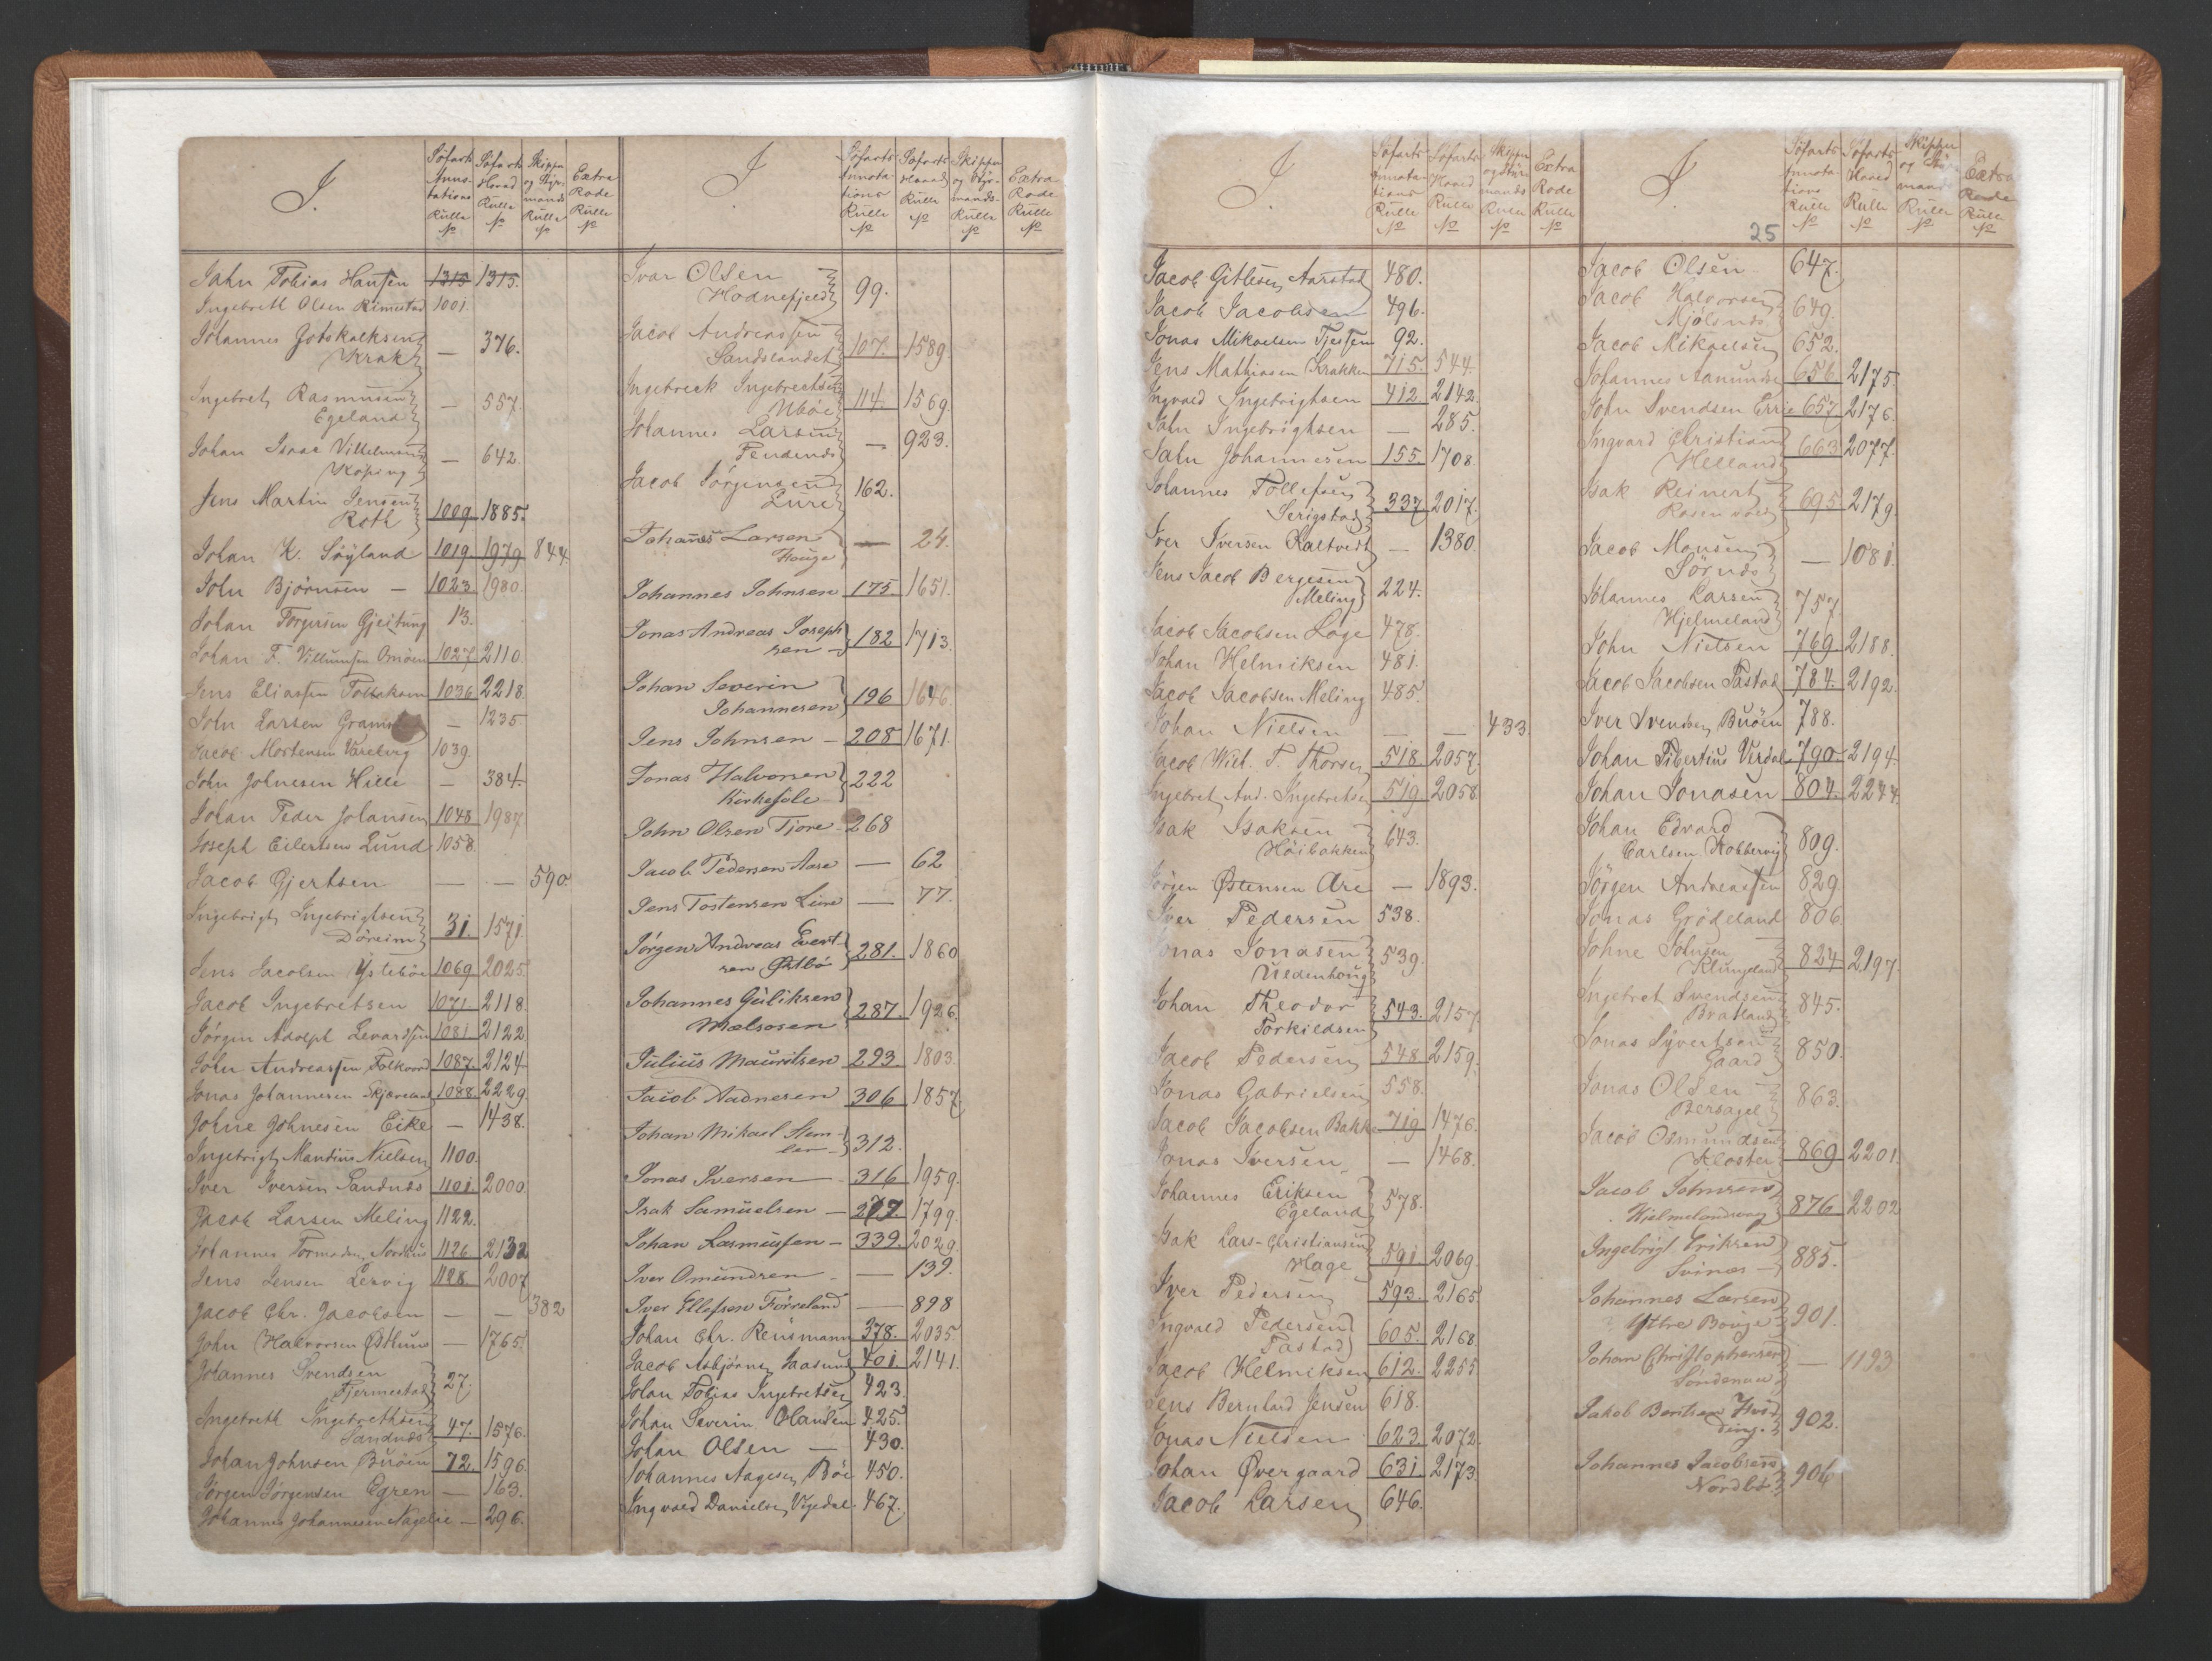 I.
Søfarts Anno- tations Rulle No
Søfarts Hoved Rulle No
Skipper og Styr- mands Rulle No
Extra Rode Rulle No
Jahn Tobias Hansen 1315 1315.
Ingebreth Olsen Rimestad 1001.
Johannes Gotskalksen
Krak — 376.
Ingebret Rasmusen
Egeland — 557.
Johan Isaac Vilhelmsen
Køping — 642.
Jens Martin Jensen
Roth 1009 1885.
Johan K. Søyland 1019 1979 844
John Bjørnsen — 1023 1980.
Johan Torgersen Gjeitung 13.
Johan F. Villumsen Omøen 1027 2110.
Jens Eliassen 1036 2218.
John Larsen — 1235
Jacob Mortensen Vareberg 1039.
John Johnesen Hille — 384.
Johan Peder Johansen 1048 1987
Joseph Eilertsen Lund 1058.
Jacob Gjertsen — — 590.
Ingebrigt Ingebrigtsen
Døreim 31. 1571.
Jens Jacobsen Ystebøe 1069 2025.
Jacob Ingebretsen 1071 2118.
Jørgen Adolph 1081. 2122.
John Andreassen Folkvord 1087. 2124
Jonas Johannesen Skjæveland 1088 2229.
Johne Johnesen Eike — 1438.
Ingebrigt Mandius Nielsen 1100.
Iver Iversen Sandnes 1101. 2000.
Jacob Larsen Meling 1122.
Johannes Tormodsen Nordhus 1126 2132
Jens Jensen Lervig 1128. 2007
Jacob Chr. Jacobsen — — 382
John Halvorsen Østhun — 1765.
Johannes Svendsen
Fjermestad 27.
Ingebreth Ingebrethsen
Sandnes 47. 1576.
Johan Johnsen Buøen 72. 1596.
Jørgen Jørgensen Egren — 163.
Johannes Johannesen Nagelie — 296.
I.
Søfarts Annota- tions Rulle No
Søfarts Hoved Rulle No
Skipper og Styr- mands- Rulle No
Extra Rode Rulle No
Ivar Olsen
Hodnefjeld 99.
Jacob Andreassen
Sandslandet 107. 1589.
Ingebreck Ingebrechtsen
Ubøe 114. 1569.
Johannes Larsen
— 923.
Jacob Jørgensen
Lure 162.
Johannes Larsen
Houge — 24.
Johannes Johnsen 175. 1651.
Jonas Andreas Joseph
sen — 182 1713.
Johan Severin
Johannesen 196 1646.
Jens Johnsen — 208 1671.
Jonas Halvorsen
Kirkeføle 222
John Olsen Tjore 268
Jacob Pedersen Aase — 62
Jens Tostensen Lure — 77.
Jørgen Andreas Evert-
sen Østbø 281. 1860
Johannes Guliksen
Mælsosen 287 1926.
Julius Mauritsen 293. 1803.
Jacob Aadnesen 306 1857
Johan Mikael Stem-
ler 312.
Jonas Iversen 316 1959.
Isak Samuelsen — 277. 1799.
Johan Rasmussen — 339. 2029.
Iver Omundsen — 139.
Iver Ellefsen Førreland — 898
Johan Chr. Reusmann 378. 2035.
Jacob Asbjørnsen Aasund 401. 2141.
Johan Tobias Ingebretsen 423.
Johan Severin Olausen 425.
Johan Olsen — 430.
Johannes Aagesen Bøe 450.
Ingvald Danielsen Vigedal 467.
I.
Søfarts Annota- tions Rulle No
Søfarts Hoved Rulle No
Skipper og Styr- mands Rulle No
Extra Rode Rulle No
Jacob Gitlesen Aarstad 480.
Jacob Jacobsen 496.
Jonas Mikaelsen Tjessem 92.
Jens Mathiasen Krakken 715. 544.
Ingvald Ingebrigtsen 412. 2142.
Jahn Ingebrigtsen — 285.
Jahn Johannesen 155. 1708.
Johannes Tollefsen
Serigstad 337. 2017.
Iver Iversen Kaltvedt — 1380.
Jens Jacob Bergesen
Meling 224.
Jacob Jacobsen Loge 478.
Johan Helmiksen 481.
Jacob Jacobsen Meling 485.
Johan Nielsen — — 433
Jacob Wil. T. Thorsen 518. 2057.
Ingebret And. Ingebretsen 519 2058.
Isak Isaksen
Høibakken 643.
Jørgen Østensen Are — 1893.
Iver Pedersen 538.
Jonas Jonasen
Uedenhoug 539.
Johan Theodor
Torkildsen 543. 2157.
Jacob Pedersen 548 2159.
Jonas Gabrielsen 558.
Jacob Jacobsen Bakke 719 1476.
Jonas Iversen — 1468.
Johannes Eriksen
Egeland 578.
Isak Lars-Christiansen
Hage 591 2069.
Iver Pedersen 593. 2165.
Ingvald Pedersen
Tastad 605. 2168
Jacob Helmiksen 612. 2255
Jens Bernhard Jensen 618.
Jonas Nielsen 623. 2072.
Johan Øvergaard 631. 2173.
Jacob Larsen 646.
I.
Søfarts Annota- tions Rulle No
Søfarts Hoved Rulle No
Skipper og mands Rulle No
Extra Rode Rulle No
25
Jacob Olsen 647.
Jacob Halvorsen
Mjølsnes 649.
Jacob Mikaelsen 652.
Johannes Aanundse 656 2175.
John Svendsen Erri 657 2176.
Ingvard Christian
Helland 663. 2077.
Isak Reinert
Rosenvold 695. 2179.
Jacob Monsen
Sørnes — 1081.
Johannes Larsen
Hjelmeland 757.
John Nielsen 769. 2188.
Jacob Jacobsen Tastad 784. 2192.
Iver Svendsen Buøen 788.
Johan Tibertius Verdal 790. 2194.
Johan Jonasen 804. 2244.
Johan Edvard
Carlsen Kobbervig 809.
Jørgen Andreassen 829.
Jonas Grødeland 806.
Johne Johnsen
Klungeland 824 2197.
Ingebret Svendsen
Bratland 845.
Jonas Syvertsen
Gaard 850.
Jonas Olsen
Bersagel 863.
Jacob Osmundsen
Kloster 869 2201.
Jacob Johnsen
Hjelmelandsvaag 876 2202
Ingebrigt Eriksen
Svines — 885.
Johannes Larsen
Yttre Bøvge 901.
Johan Christophersen
Søndenaa — 1193
Jakob Bentsen Hvid-
ding. 902.
Johannes Jacobsen
Nordbø 906